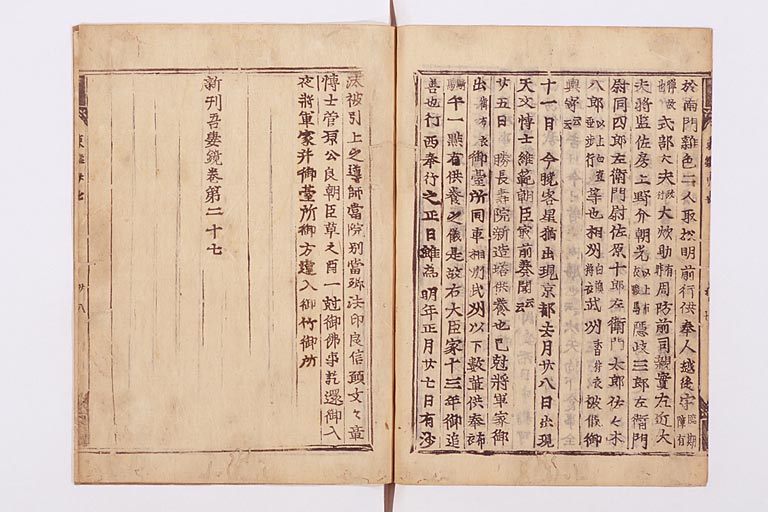 於南門雜色二人取松明前行供奉人越後守
式部大夫 大炊助 周防前司親實左近大
夫將監佐房上野介朝光 隱岐三郎左衛門
尉同四郎左衛門尉佐原十郎左衛門太郎佐々木
八郎 步行等也相州 武州 被候御
輿寄云云
十一日 今曉客星猶出現京都去月廿八日出現
天文博士維範朝臣 奏聞云云
廿五日 勝長壽院新造塔供養也巳尅將軍家御
出 御臺所同車相州武州以下數輩供奉
午一點有供養之儀是故右大臣家十三年御追
善也行西奉行之正日雖為明年正月廿七日有沙
汰被引上之導師當院別當 法印良信願文 章
博士 公良朝臣草之酉一尅御佛事訖還御入
夜將軍家幷御臺所御方違入御 御所
新刊吾妻鏡卷第二十七